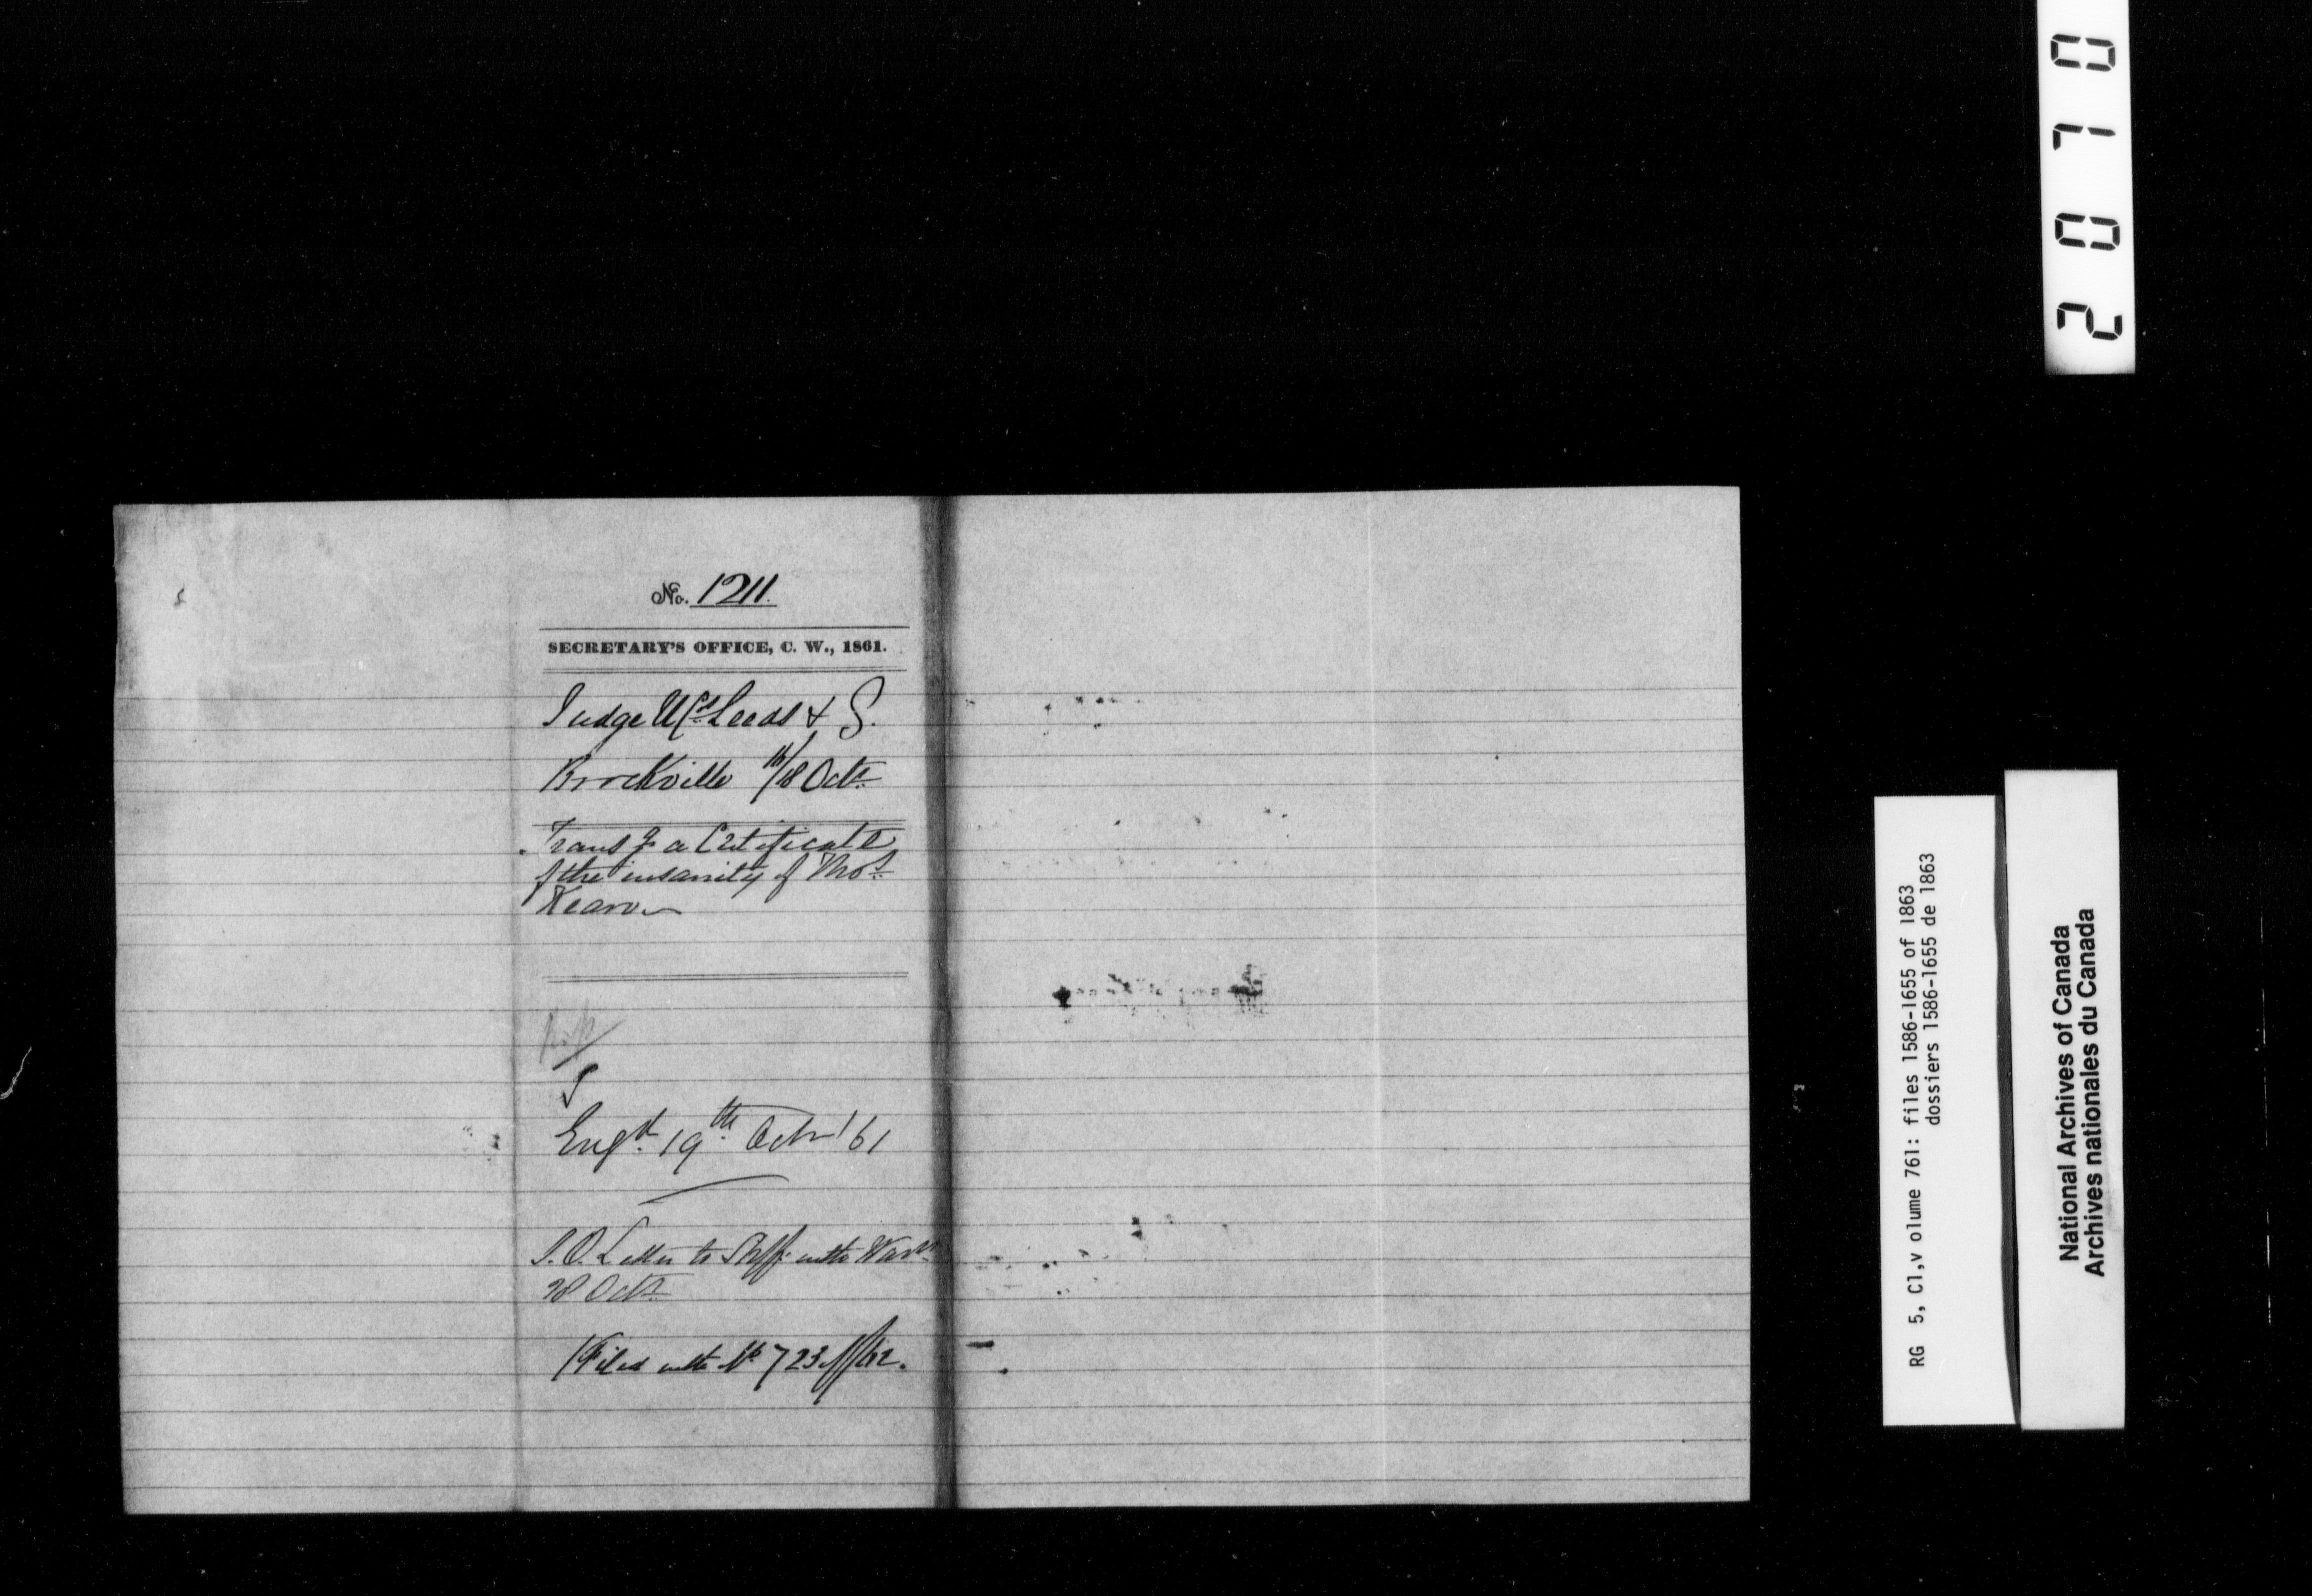 No. 1211.
SECRETARY'S OFFICE, C. W., 1861.
Judge U Cs Leeds & G.
Brockville 16/18 Octr.
Transg a Certificate
of the insanity of Thos.
S
Engd. 19th. Octr '61
S. O. Letter to Shff. with Warrt.
28 Octr.
(Filed with No 723 of /62.
2070
RG 5, Cl,v olume 761: files 1586-1655 of 1863
dossiers 1586-1655 de 1863
National Archives of Canada
Archives nationales du Canada